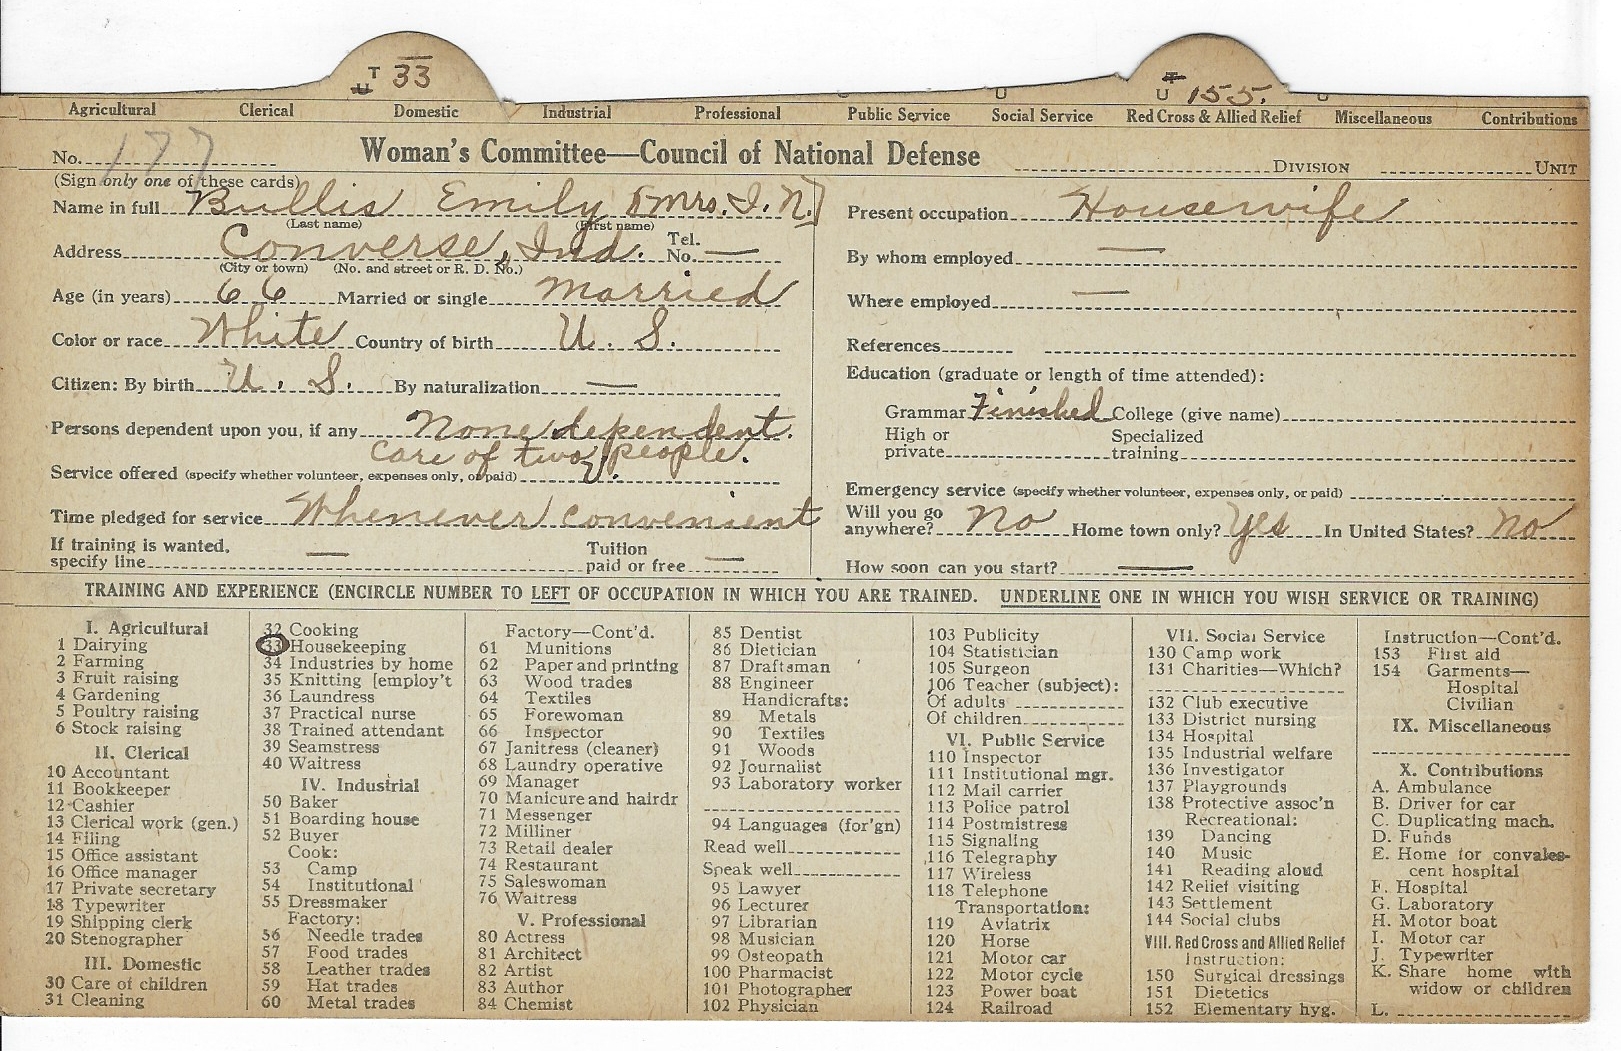 T 33
U
T
U 155.
U
U
Agricultural Clerical Domestic Industrial Professional Public Service Social Service Red Cross & Allied Relief Miscellaneous Contributions
No. 177 Woman's Committee—Council of National Defense DIVISION UNIT
(Sign only one of these cards)
Name in full Bullis Emily [Mrs. I. N.]
(Last name) (First name)
Address Converse, Ind. Tel. No. —
(City or town) (No. and street or R. D. No.)
Age (in years) 66 Married or single Married
Color or race White Country of birth U. S.
Citizen: By birth U. S. By naturalization —
Persons dependent upon you, if any None dependent.
Care of two people.
Service offered (specify whether volunteer, expenses only, or paid)
Time pledged for service Whenever convenient
If training is wanted, specify line — Tuition paid or free —
Present occupation Housewife
By whom employed —
Where employed —
References
Education (graduate or length of time attended):
Grammar Finished College (give name)
High or private Specialized training
Emergency service (specify whether volunteer, expenses only, or paid)
Will you go anywhere? No Home town only? Yes In United States? No
How soon can you start? —
TRAINING AND EXPERIENCE (ENCIRCLE NUMBER TO LEFT OF OCCUPATION IN WHICH YOU ARE TRAINED. UNDERLINE ONE IN WHICH YOU WISH SERVICE OR TRAINING)
I. Agricultural
1 Dairying
2 Farming
3 Fruit raising
4 Gardening
5 Poultry raising
6 Stock raising
II. Clerical
10 Accountant
11 Bookkeeper
12 Cashier
13 Clerical work (gen.)
14 Filing
15 Office assistant
16 Office manager
17 Private secretary
18 Typewriter
19 Shipping clerk
20 Stenographer
III. Domestic
30 Care of children
31 Cleaning
32 Cooking
33 Housekeeping
34 Industries by home
35 Knitting [employ't
36 Laundress
37 Practical nurse
38 Trained attendant
39 Seamstress
40 Waitress
IV. Industrial
50 Baker
51 Boarding house
52 Buyer
Cook:
53 Camp
54 Institutional
55 Dressmaker
Factory:
56 Needle trades
57 Food trades
58 Leather trades
59 Hat trades
60 Metal trades
Factory—Cont'd.
61 Munitions
62 Paper and printing
63 Wood trades
64 Textiles
65 Forewoman
66 Inspector
67 Janitress (cleaner)
68 Laundry operative
69 Manager
70 Manicure and hairdr
71 Messenger
72 Milliner
73 Retail dealer
74 Restaurant
75 Saleswoman
76 Waitress
V. Professional
80 Actress
81 Architect
82 Artist
83 Author
84 Chemist
85 Dentist
86 Dietician
87 Draftsman
88 Engineer
Handicrafts:
89 Metals
90 Textiles
91 Woods
92 Journalist
93 Laboratory worker
94 Languages (for'gn)
Read well
Speak well
95 Lawyer
96 Lecturer
97 Librarian
98 Musician
99 Osteopath
100 Pharmacist
101 Photographer
102 Physician
103 Publicity
104 Statistician
105 Surgeon
106 Teacher (subject):
Of adults
Of children
VI. Public Service
110 Inspector
111 Institutional mgr.
112 Mail carrier
113 Police patrol
114 Postmistress
115 Signaling
116 Telegraphy
117 Wireless
118 Telephone
Transportation:
119 Aviatrix
120 Horse
121 Motor car
122 Motor cycle
123 Power boat
124 Railroad
VII. Social Service
130 Camp work
131 Charities—Which?
132 Club executive
133 District nursing
134 Hospital
135 Industrial welfare
136 Investigator
137 Playgrounds
138 Protective assoc'n
Recreational:
139 Dancing
140 Music
141 Reading aloud
142 Relief visiting
143 Settlement
144 Social clubs
VIII. Red Cross and Allied Relief
Instruction:
150 Surgical dressings
151 Dietetics
152 Elementary hyg.
Instruction—Cont'd.
153 First aid
154 Garments—
Hospital
Civilian
IX. Miscellaneous
X. Contributions
A. Ambulance
B. Driver for car
C. Duplicating mach.
D. Funds
E. Home for convales-
cent hospital
F. Hospital
G. Laboratory
H. Motor boat
I. Motor car
J. Typewriter
K. Share home with
widow or children
L.